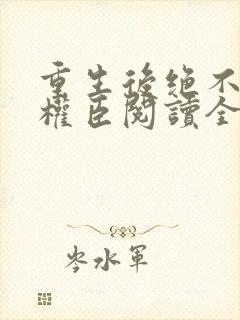 重生後绝不
權臣閱讀全
岑水軍